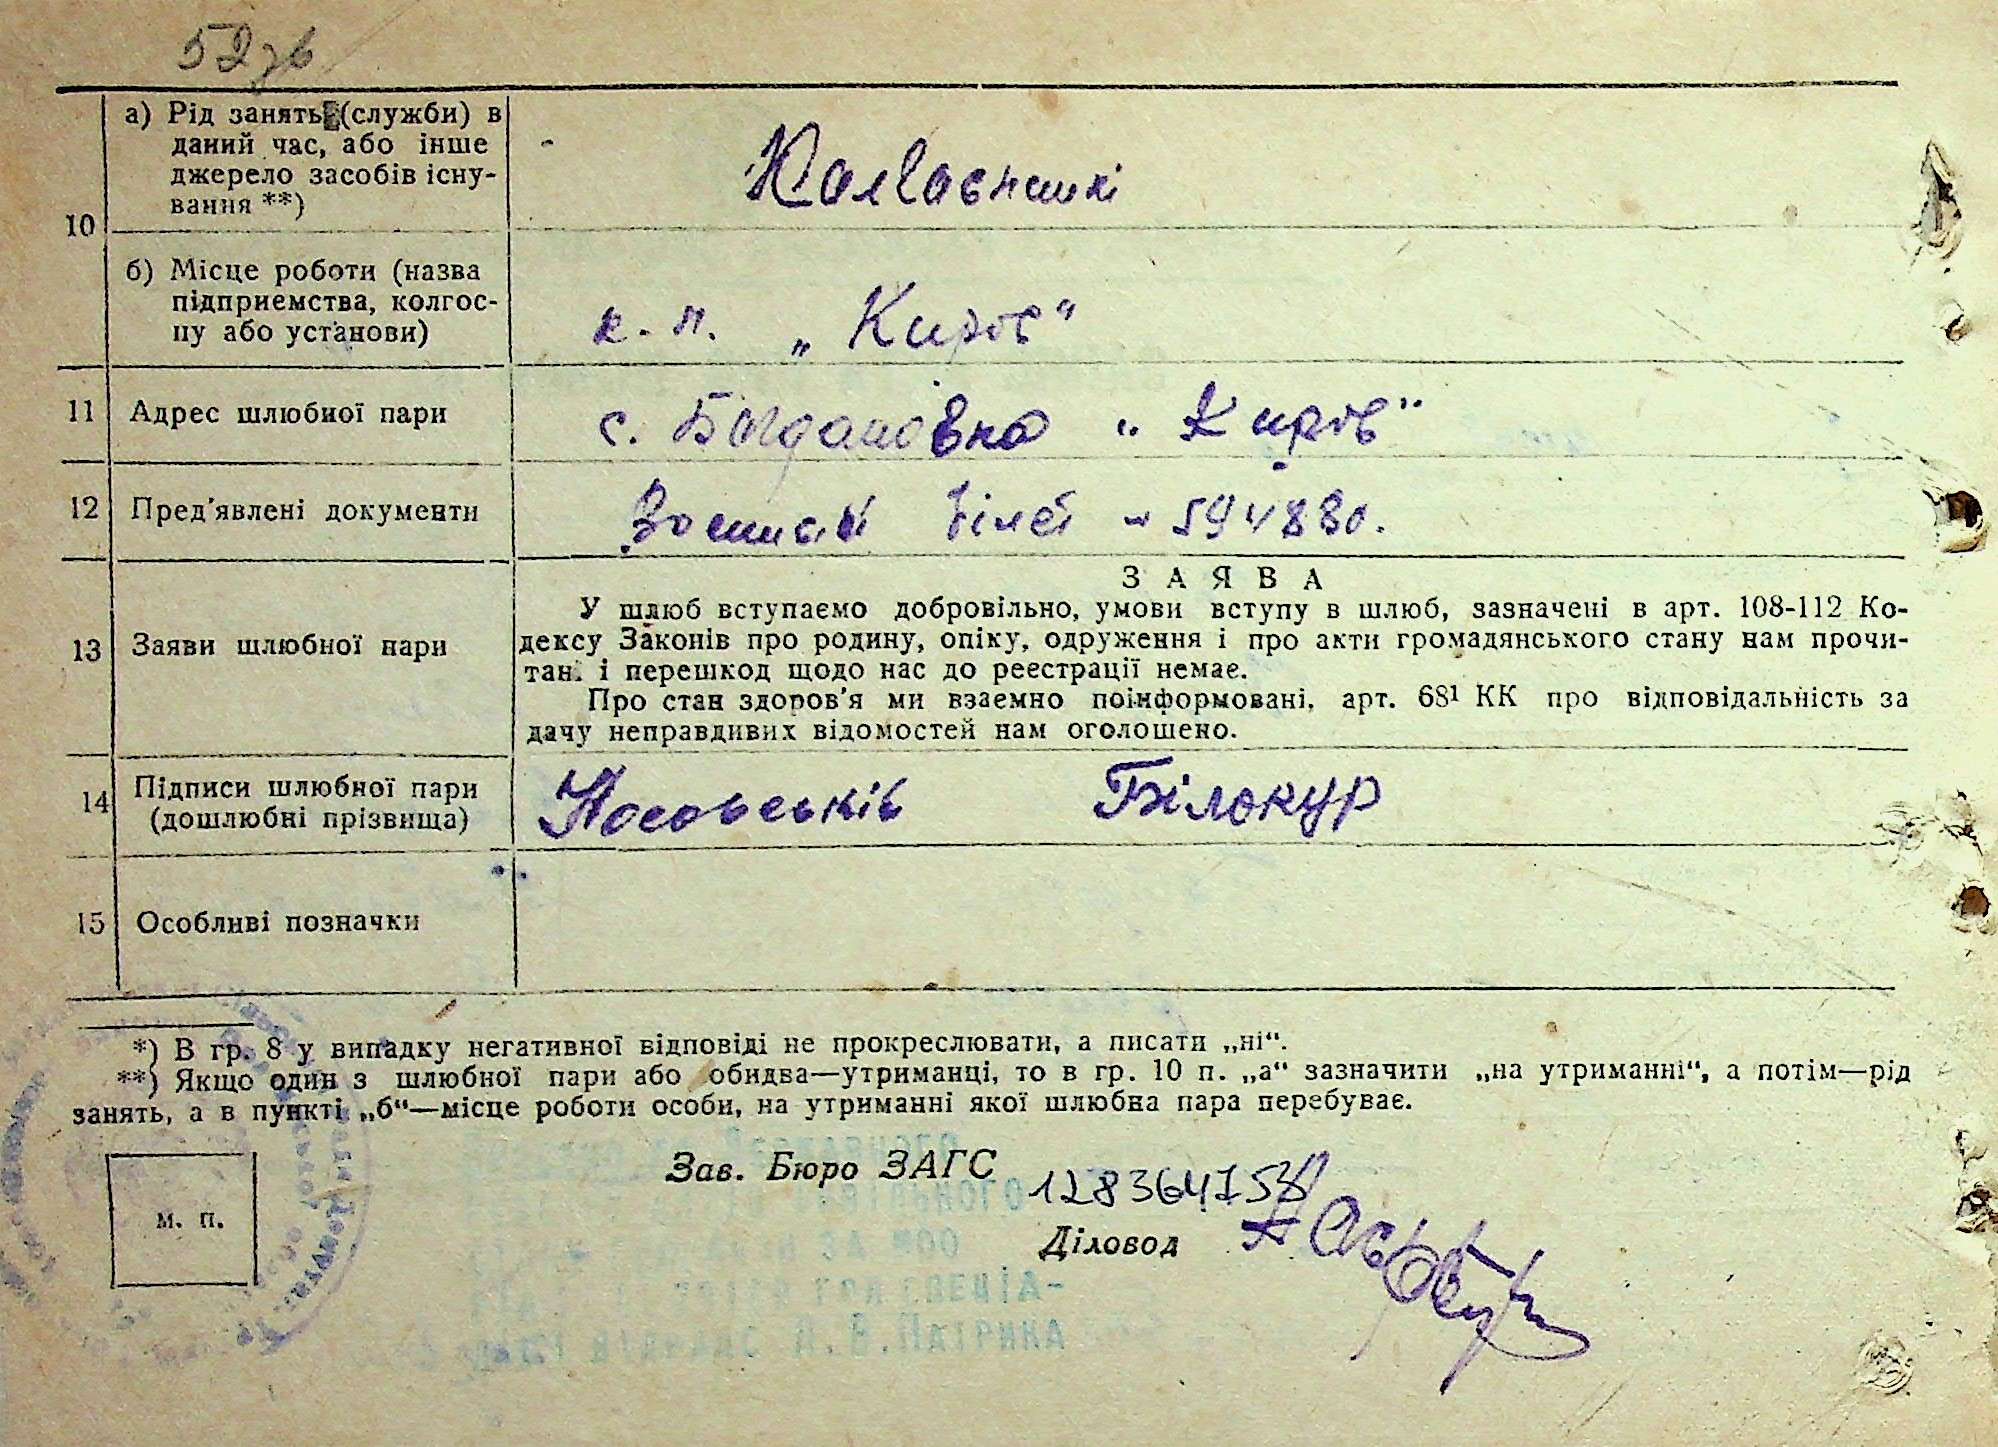 52зв
10
а) Рід занять (служби) в
даний час, або інше
джерело засобів існу-
вання **)
Колгоспникі
б) Місце роботи (назва
підприємства, колгос-
пу або установи)
к. п. „Киров"
11 Адрес шлюбної пари
с. Богдановка „Киров"
12 Пред'явлені документи
Военний білет - 594880.
13 Заяви шлюбної пари
ЗАЯВА
У шлюб вступаємо добровільно, умови вступу в шлюб, зазначені в арт. 108-112 Ко-
дексу Законів про родину, опіку, одруження і про акти громадянського стану нам прочи-
тані і перешкод щодо нас до реєстрації немає.
Про стан здоров'я ми взаємно поінформовані, арт. 68¹ КК про відповідальність за
дачу неправдивих відомостей нам оголошено.
14 Підписи шлюбної пари
(дошлюбні прізвища)
Носовськів Білокур
15 Особливі позначки
*) В гр. 8 у випадку негативної відповіді не прокреслювати, а писати „ні“.
**) Якщо один з шлюбної пари або обидва—утриманці, то в гр. 10 п. „а“ зазначити „на утриманні“, а потім—рід
занять, а в пункті „б“—місце роботи особи, на утриманні якої шлюбна пара перебуває.
Зав. Бюро ЗАГС
м. п.
Діловод